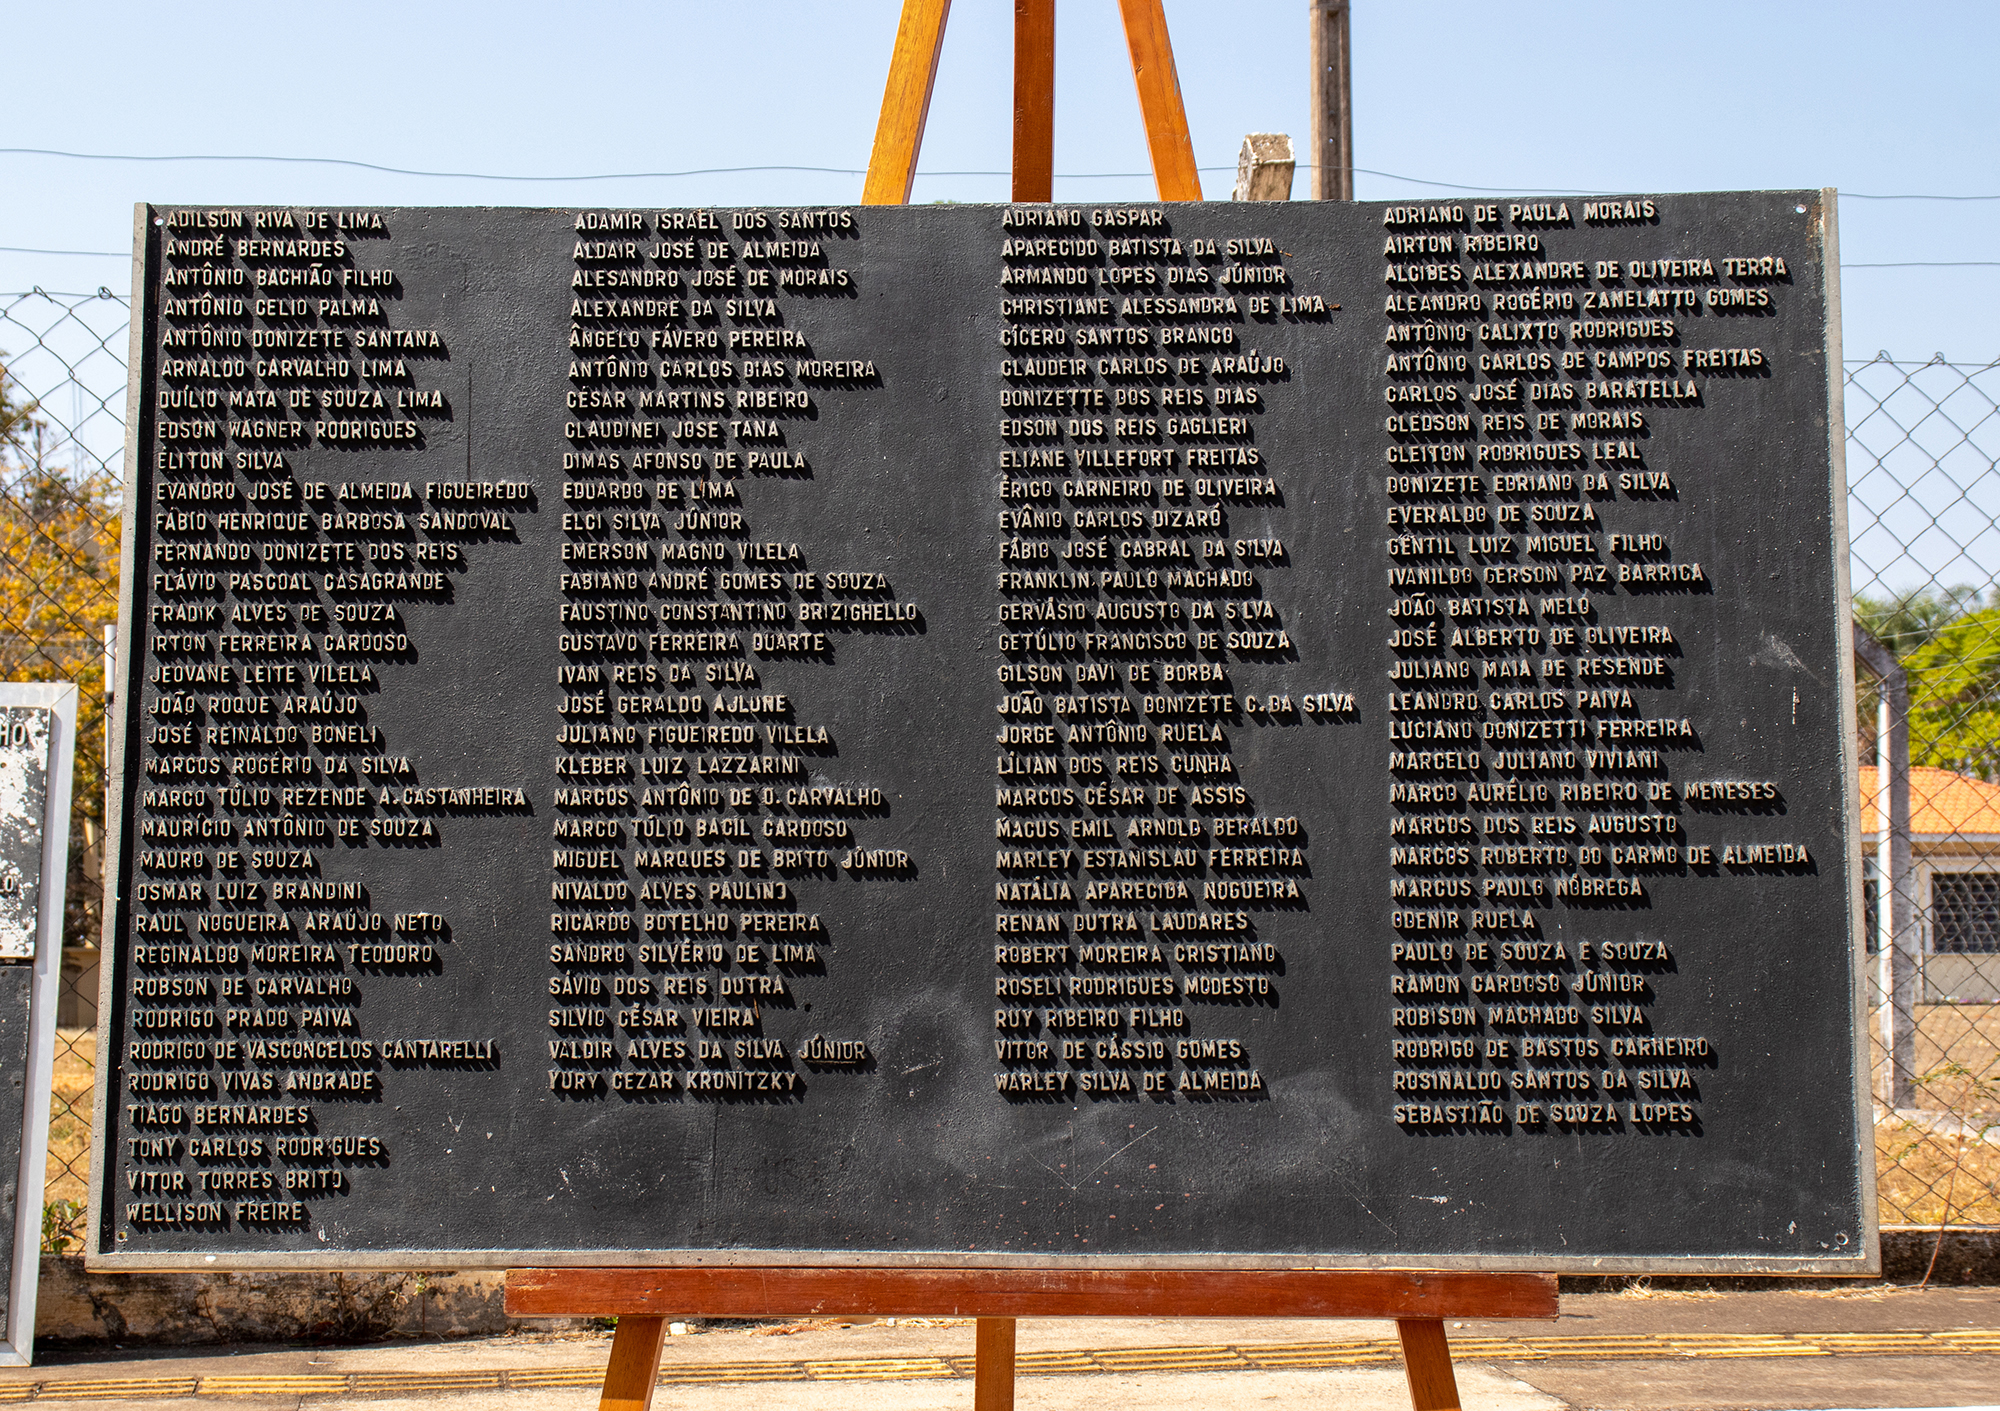 ADILSON RIVA DE LIMA
ANDRÉ BERNARDES
ANTÔNIO BACHIÃO FILHO
ANTÔNIO CELIO PALMA
ANTÔNIO DONIZETE SANTANA
ARNALDO CARVALHO LIMA
DUÍLIO MATA DE SOUZA LIMA
EDSON WAGNER RODRIGUES
ELITON SILVA
EVANDRO JOSÉ DE ALMEIDA FIGUEIREDO
FÁBIO HENRIQUE BARBOSA SANDOVAL
FERNANDO DONIZETE DOS REIS
FLÁVIO PASCOAL CASAGRANDE
FRADIK ALVES DE SOUZA
IRTON FERREIRA CARDOSO
JEOVANE LEITE VILELA
JOÃO ROQUE ARAÚJO
JOSÉ REINALDO BONELI
MARCOS ROGÉRIO DA SILVA
MARCO TÚLIO REZENDE A. CASTANHEIRA
MAURÍCIO ANTÔNIO DE SOUZA
MAURO DE SOUZA
OSMAR LUIZ BRANDINI
RAUL NOGUEIRA ARAÚJO NETO
REGINALDO MOREIRA TEODORO
ROBSON DE CARVALHO
RODRIGO PRADO PAIVA
RODRIGO DE VASCONCELOS CANTARELLI
RODRIGO VIVAS ANDRADE
TIAGO BERNARDES
TONY CARLOS RODRIGUES
VITOR TORRES BRITO
WELLISON FREIRE
ADAMIR ISRAEL DOS SANTOS
ALDAIR JOSÉ DE ALMEIDA
ALESANDRO JOSÉ DE MORAIS
ALEXANDRE DA SILVA
ÂNGELO FÁVERO PEREIRA
ANTÔNIO CARLOS DIAS MOREIRA
CÉSAR MARTINS RIBEIRO
CLAUDINEI JOSE TANA
DIMAS AFONSO DE PAULA
EDUARDO DE LIMA
ELCI SILVA JÚNIOR
EMERSON MAGNO VILELA
FABIANO ANDRÉ GOMES DE SOUZA
FAUSTINO CONSTANTINO BRIZIGHELLO
GUSTAVO FERREIRA DUARTE
IVAN REIS DA SILVA
JOSÉ GERALDO AJLUNE
JULIANO FIGUEIREDO VILELA
KLEBER LUIZ LAZZARINI
MARCOS ANTÔNIO DE O. CARVALHO
MARCO TÚLIO BACIL CARDOSO
MIGUEL MARQUES DE BRITO JÚNIOR
NIVALDO ALVES PAULINO
RICARDO BOTELHO PEREIRA
SANDRO SILVÉRIO DE LIMA
SÁVIO DOS REIS DUTRA
SILVIO CÉSAR VIEIRA
VALDIR ALVES DA SILVA JÚNIOR
YURY CEZAR KRONITZKY
ADRIANO GASPAR
APARECIDO BATISTA DA SILVA
ARMANDO LOPES DIAS JÚNIOR
CHRISTIANE ALESSANDRA DE LIMA
CÍCERO SANTOS BRANCO
CLAUDEIR CARLOS DE ARAÚJO
DONIZETTE DOS REIS DIAS
EDSON DOS REIS GAGLIERI
ELIANE VILLEFORT FREITAS
ÉRICO CARNEIRO DE OLIVEIRA
EVÂNIO CARLOS DIZARÓ
FÁBIO JOSÉ CABRAL DA SILVA
FRANKLIN PAULO MACHADO
GERVÁSIO AUGUSTO DA SILVA
GETÚLIO FRANCISCO DE SOUZA
GILSON DAVI DE BORBA
JOÃO BATISTA DONIZETE C. DA SILVA
JORGE ANTÔNIO RUELA
LÍLIAN DOS REIS CUNHA
MARCOS CÉSAR DE ASSIS
MACUS EMIL ARNOLD BERALDO
MARLEY ESTANISLAU FERREIRA
NATÁLIA APARECIDA NOGUEIRA
RENAN DUTRA LAUDARES
ROBERT MOREIRA CRISTIANO
ROSELI RODRIGUES MODESTO
RUY RIBEIRO FILHO
VITOR DE CÁSSIO GOMES
WARLEY SILVA DE ALMEIDA
ADRIANO DE PAULA MORAIS
AIRTON RIBEIRO
ALCIBES ALEXANDRE DE OLIVEIRA TERRA
ALEANDRO ROGÉRIO ZANELATTO GOMES
ANTÔNIO CALIXTO RODRIGUES
ANTÔNIO CARLOS DE CAMPOS FREITAS
CARLOS JOSÉ DIAS BARATELLA
CLEDSON REIS DE MORAIS
CLEITON RODRIGUES LEAL
DONIZETE EDRIANO DA SILVA
EVERALDO DE SOUZA
GENTIL LUIZ MIGUEL FILHO
IVANILDO GERSON PAZ BARRICA
JOÃO BATISTA MELO
JOSÉ ALBERTO DE OLIVEIRA
JULIANO MAIA DE RESENDE
LEANDRO CARLOS PAIVA
LUCIANO DONIZETTI FERREIRA
MARCELO JULIANO VIVIANI
MARCO AURÉLIO RIBEIRO DE MENESES
MARCOS DOS REIS AUGUSTO
MARCOS ROBERTO DO CARMO DE ALMEIDA
MARCUS PAULO NÓBREGA
ODENIR RUELA
PAULO DE SOUZA E SOUZA
RAMON CARDOSO JÚNIOR
ROBISON MACHADO SILVA
RODRIGO DE BASTOS CARNEIRO
ROSINALDO SANTOS DA SILVA
SEBASTIÃO DE SOUZA LOPES